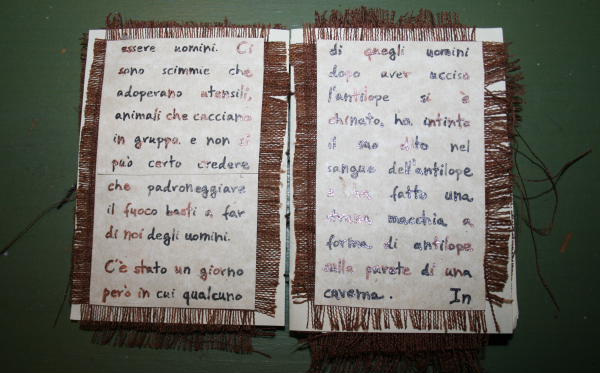 essere uomini. Ci
sono scimmie che
adoperano utensili,
animali che cacciano
in gruppo. e non si
può certo credere
che padroneggiare
il fuoco basti a far
di noi degli uomini.
C'è stato un giorno
però in cui qualcuno
di quegli uomini
dopo aver ucciso
l'antilope si è
chinato, ha intinto
il suo dito nel
sangue dell'antilope
e ha fatto una
strana macchia a
forma di antilope
sulla parete di una
caverna. In